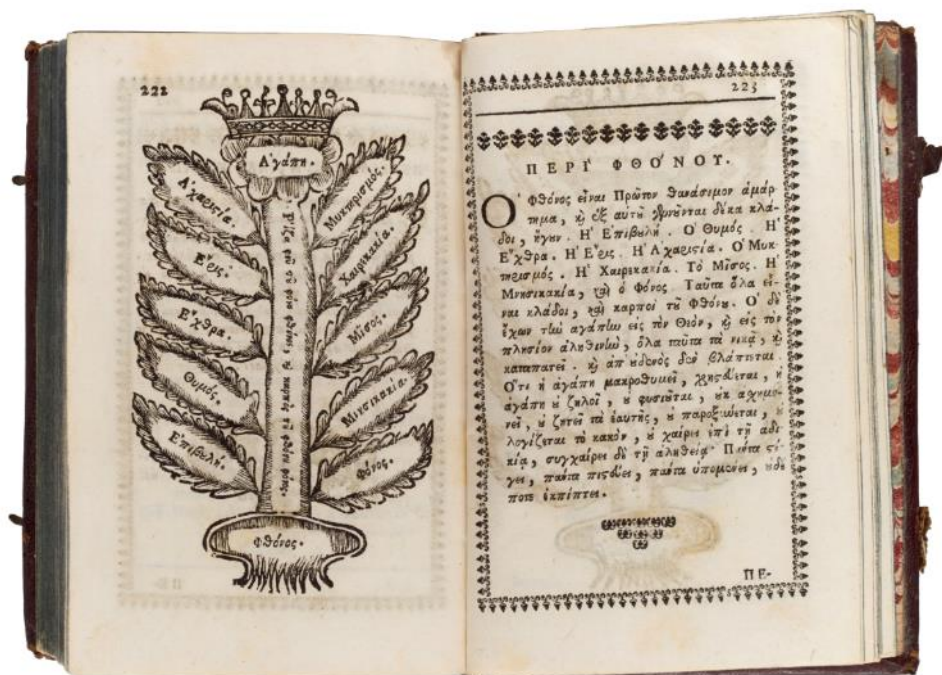 222
Ἀγάπη.
Ἀχαριστία.
Μυκτηρισμός.
Ἔρις.
Χαιρεκακία.
Ἔχθρα.
Μῖσος.
Θυμός.
Μνισικακία.
Ἐπιβυλή.
Φόνος.
Φθόνος.
223
ΠΕΡΙ ΦΘΟΝΟΥ.
Ὁ Φθόνος εἶναι Πρῶτον θανάσιμον ἁμάρ-
τημα, ϗ ἐξ αὐτȣ γεννῶνται δέκα κλά-
δοι, ἤγȣν. Ἡ Ἐπιβυλή. Ὁ Θυμός. Ἡ
Ἔχθρα. Ἡ Ἔρις. Ἡ Ἀχαριστία. Ὁ Μυκ-
τηρισμός. Ἡ Χαιρεκακία. Τὸ Μῖσος. Ἡ
Μνησικακία, καὶ ὁ Φόνος. Ταῦτα ὅλα εἶ-
ναι κλάδοι, καὶ καρποὶ τȣ Φθόνȣ. Ὁ δὲ
ἔχων τὴν ἀγάπην εἰς τὸν Θεὸν, ϗ εἰς τὸν
πλησίον ἀληθινὴν, ὅλα ταῦτα τὰ νικᾷ, ϗ
καταπατεῖ. ϗ ἀπ' ȣδενὸς δὲν βλάπτεται.
Ὅτι ἡ ἀγάπη μακροθυμεῖ, χρηστεύεται, ἡ
ἀγάπη ȣ ζηλοῖ, ȣ φυσιȣται, ȣκ ἀσχημο-
νεῖ, ȣ ζητεῖ τὰ ἑαυτῆς, ȣ παροξύνεται, ȣ
λογίζεται τὸ κακὸν, ȣ χαίρει ἐπὶ τῇ ἀδι-
κίᾳ, συγχαίρει δὲ τῇ ἀληθείᾳ. Πάντα στέ-
γει, πάντα πιστεύει, πάντα ὑπομένει, ȣδέ
ποτε ἐκπίπτει.
ΠΕ-